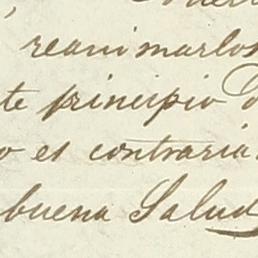 reanimarlos
te principio
o es contraria
buena Salud